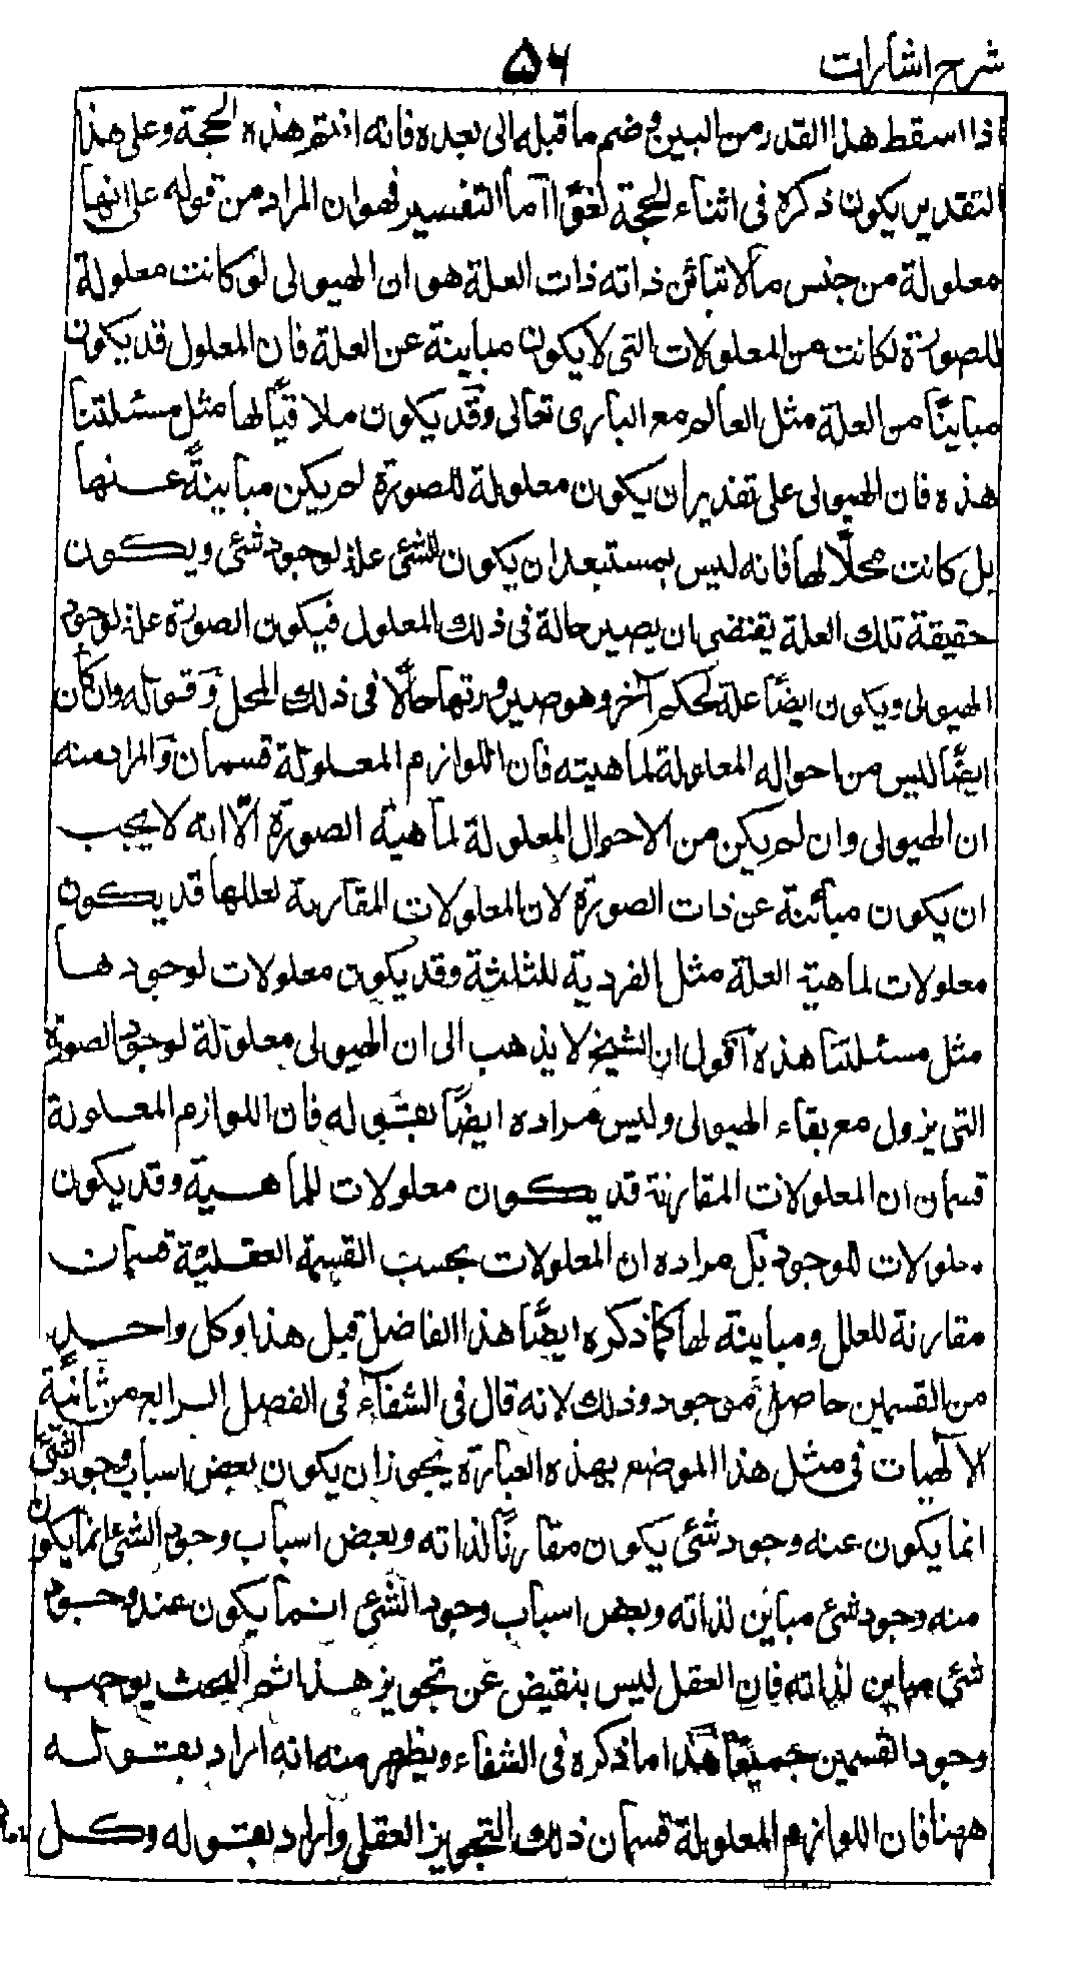 شرح اشارات
٥٦
اذا اسقط هذا القدر من البين و ضم ما قبله الى بعده فانه انتهم هذه الحجة وعلى هذا
التقدير يكون ذكره فى اثناء الحجة لغوًا آما التفسير فهو ان المراد من قوله على انها
معلولة من جنس ما لا تبائن ذاته ذات العلة هو ان الهيولى لو كانت معلولة
للصورة لكانت من المعلولات التى لا يكون مباينة عن العلة فان المعلول قد يكون
مباينًا من العلة مثل العالم مع البارى تعالى وقد يكون ملاقيًا لها مثل مسئلتنا
هذه فان الهيولى على تقدير ان يكون معلولة للصورة لم يكن مباينةً عنها
بل كانت محلًّا لها فانه ليس بمستبعد ان يكون للشئ علة لوجود شئ ويكون
حقيقة تلك العلة يقتضى ان يصير حالة فى ذلك المعلول فيكون الصورة علة لوجود
الهيولى ويكون ايضًا علة لحكم آخر وهو صيرورتها حالًّا فى ذلك المحل وقوله وان كان
ايضًا ليس من احواله المعلولة لماهيته فان اللوازم المعلولة قسمان والمراد منه
ان الهيولى وان لم يكن من الاحوال المعلولة لماهية الصورة الّا انه لا يجب
ان يكون مبائنة عن ذات الصورة لان المعلولات المقارنة لعللها قد يكون
معلولات لماهية العلة مثل الفردية للثلثة وقد يكون معلولات لوجودها
مثل مسئلتنا هذه آقول ان الشيخ لا يذهب الى ان الهيولى معلولة لوجود الصورة
التى يزول مع بقاء الهيولى وليس مراده ايضًا بقوله فان اللوازم المعلولة
قسمان ان المعلولات المقارنة قد يكون معلولات للماهية وقد يكون
معلولات للوجود بل مراده ان المعلولات بحسب القسمة العقلية قسمان
مقارنة للعلل ومباينة لها كما ذكره ايضًا هذا الفاضل قبل هذا وكل واحد
من القسمين حاصل موجود وذلك لانه قال فى الشفآء فى الفصل الرابع من ثانية
الالهيات فى مثل هذا الموضع بهذه العبارة يجوز ان يكون بعض اسباب وجود الشئ
انما يكون عنه وجود شئ يكون مقارنًا لذاته وبعض اسباب وجود الشئ انما يكون
منه وجود شئ مباين لذاته وبعض اسباب وجود الشئ انما يكون عنه وجود
شئ مباين لذاته فان العقل ليس بنقيض عن تجويز هذا ثم البحث يوجب
وجود القسمين جميعًا هذا ما ذكره فى الشفاء ويظهر منه انه اراد بقوله
ههنا فان اللوازم المعلولة قسمان ذلك التجويز العقلى وآراد بقوله وكل